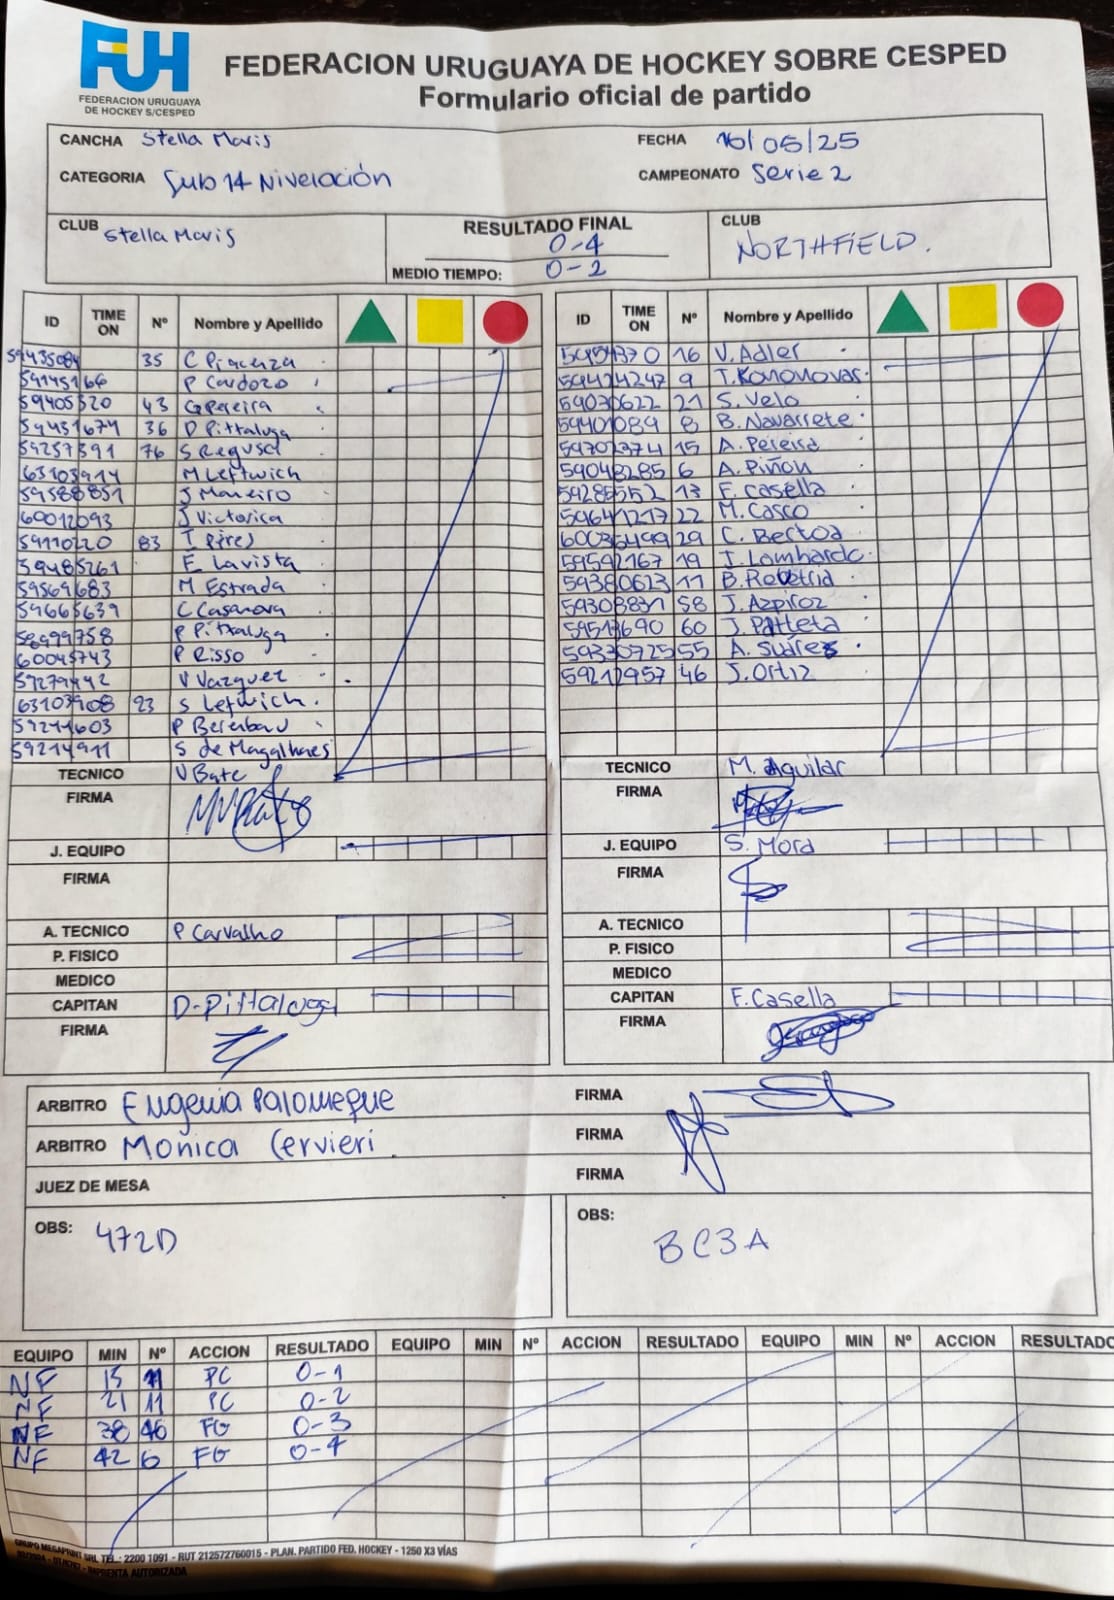 FUH
FEDERACION URUGUAYA
DE HOCKEY S/CESPED
FEDERACION URUGUAYA DE HOCKEY SOBRE CESPED
Formulario oficial de partido
CANCHA Stella Maris FECHA 10/05/25
CATEGORIA Sub 14 Nivelación CAMPEONATO Serie 2
CLUB Stella Maris RESULTADO FINAL 0-4 CLUB NORTHFIELD.
MEDIO TIEMPO: 0-2
ID TIME ON Nº Nombre y Apellido
59435084 35 C Piacenza
59145166 P Cardozo
59405320 43 G Pereira
59451674 36 D Pittaluga
59257391 76 S Regusci
63103914 M Leftwich
59588851 J Maneiro
60012093 J Victorica
59110220 83 T Pires
59485261 E Lavista
59569683 M Estrada
59665639 C Casanova
58999758 P Pittaluga
60045743 P Risso
59279442 V Vazquez
63103908 23 S Leftwich
59211603 P Berenbau
59214911 S de Magalhaes
TECNICO V Bate
FIRMA
J. EQUIPO
FIRMA
A. TECNICO P Carvalho
P. FISICO
MEDICO
CAPITAN D-Pittaluga
FIRMA
ID TIME ON Nº Nombre y Apellido
5954370 16 V. Adler
59424247 9 T. Kononovas
59030622 21 S. Velo
59401089 8 B. Navarrete
59702374 15 A. Pereira
59048285 6 A. Piñon
59285552 13 F. Casella
59641217 22 M. Casco
60035499 29 C. Bertoa
59592167 19 J. Lombardo
59380623 11 B. Rovetria
59308831 58 J. Azpiroz
59513690 60 J. Patteta
59330725 55 A. Suárez
59212957 46 J. Ortiz
TECNICO M. Aguilar
FIRMA
J. EQUIPO S. Mora
FIRMA
A. TECNICO
P. FISICO
MEDICO
CAPITAN F. Casella
FIRMA
ARBITRO Eugenia Palomeque FIRMA
ARBITRO Monica Cervieri FIRMA
JUEZ DE MESA FIRMA
OBS: 472D OBS: BC3A
EQUIPO MIN Nº ACCION RESULTADO EQUIPO MIN Nº ACCION RESULTADO EQUIPO MIN Nº ACCION RESULTADO
NF 15 11 PC 0-1
NF 21 11 PC 0-2
NF 38 46 FG 0-3
NF 42 6 FG 0-4
GRUPO MEGAPRINT SRL TEL.: 2200 1091 - RUT 212572760015 - PLAN. PARTIDO FED. HOCKEY - 1250 X3 VÍAS
IMPRENTA AUTORIZADA